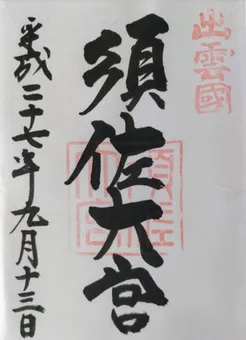 出雲國
須佐大宮
平成二十七年九月十三日